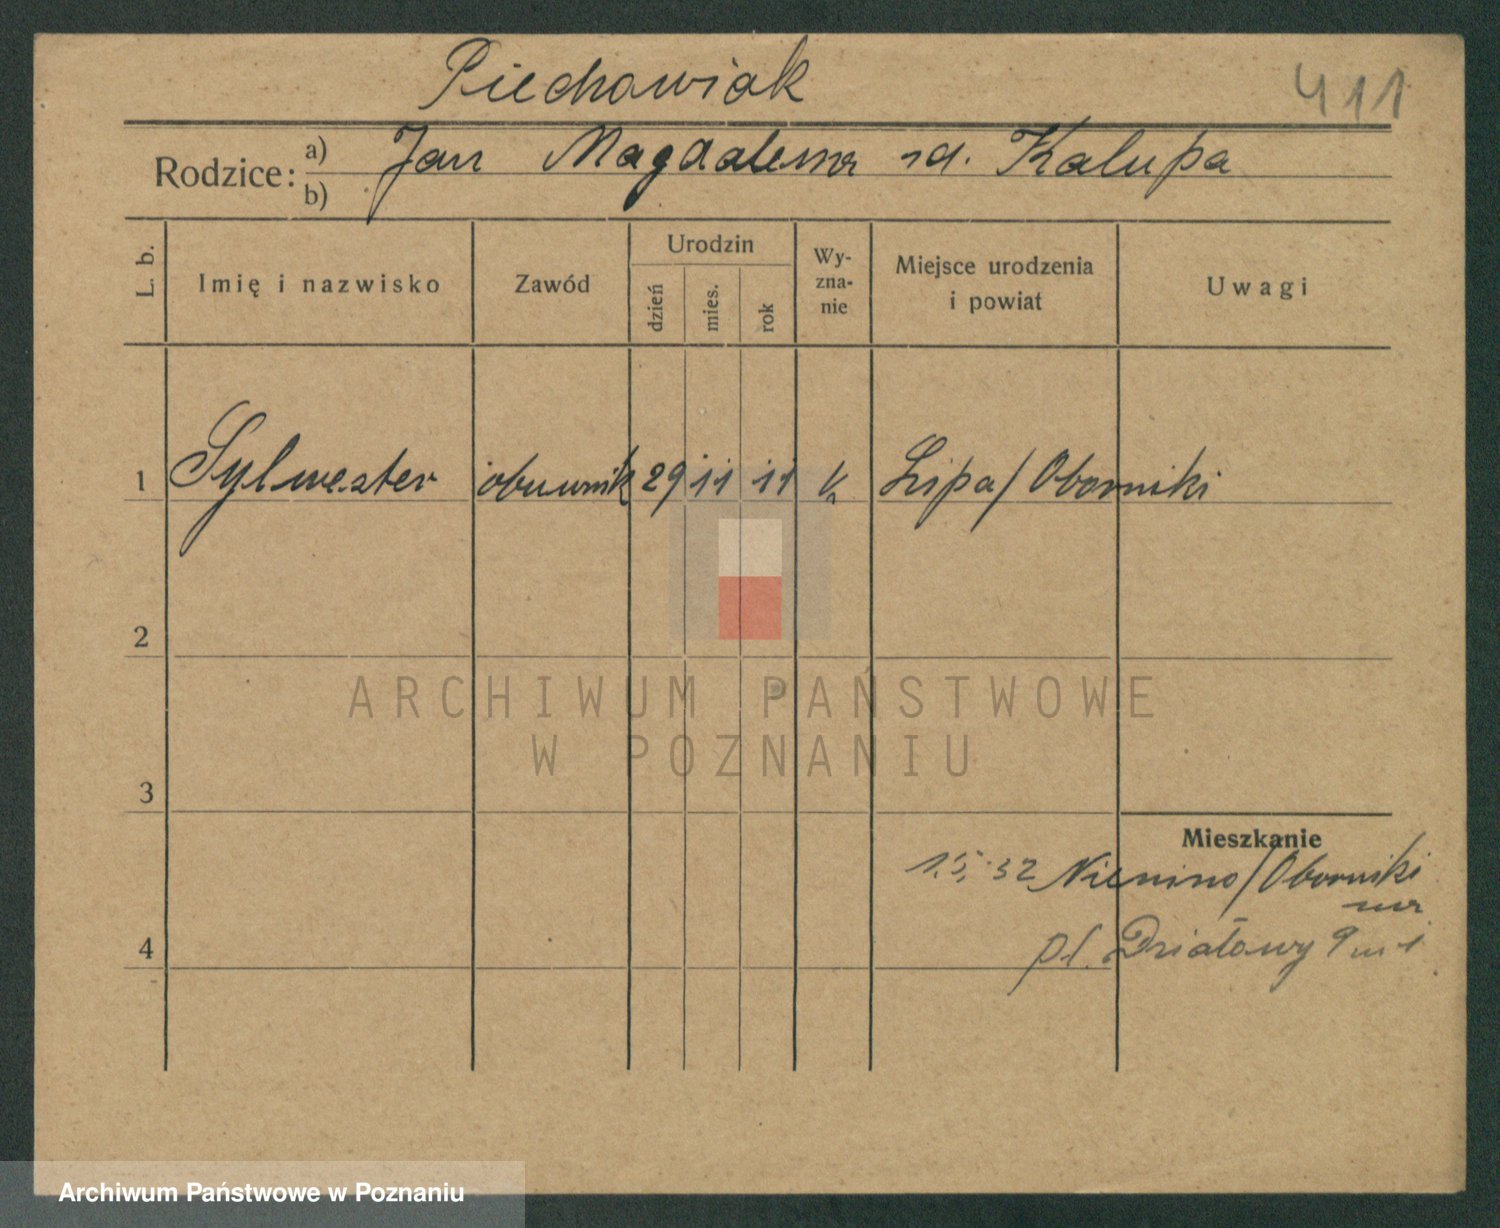 Piechowiak
411
Rodzice: a) b) Jan Magdalena zd. Kałupa
L. b. Imię i nazwisko Zawód Urodzin dzień mies. rok Wyznanie Miejsce urodzenia i powiat Uwagi
1 Sylwester obuwnik 29 11 11 k Lipa/Oborniki
2
ARCHIWUM PAŃSTWOWE
W POZNANIU
3
Mieszkanie
1.5.32 Nienino/Oborniki
pl. Działowy 9 m 1
4
Archiwum Państwowe w Poznaniu